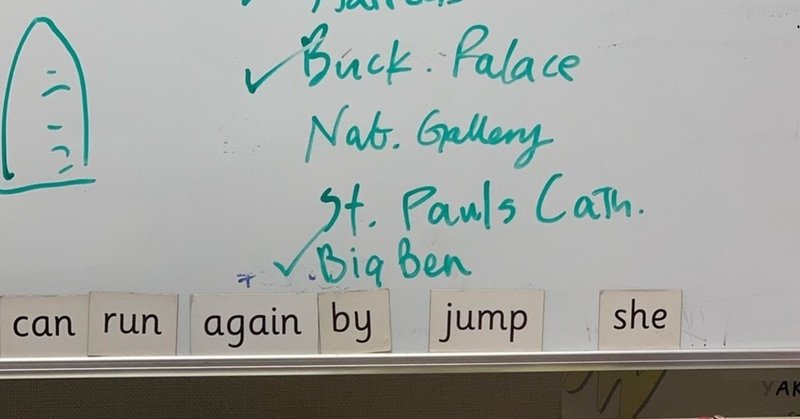 Buck. Palace
Nat. Gallery
St. Pauls Cath.
Big Ben
can run again by jump she